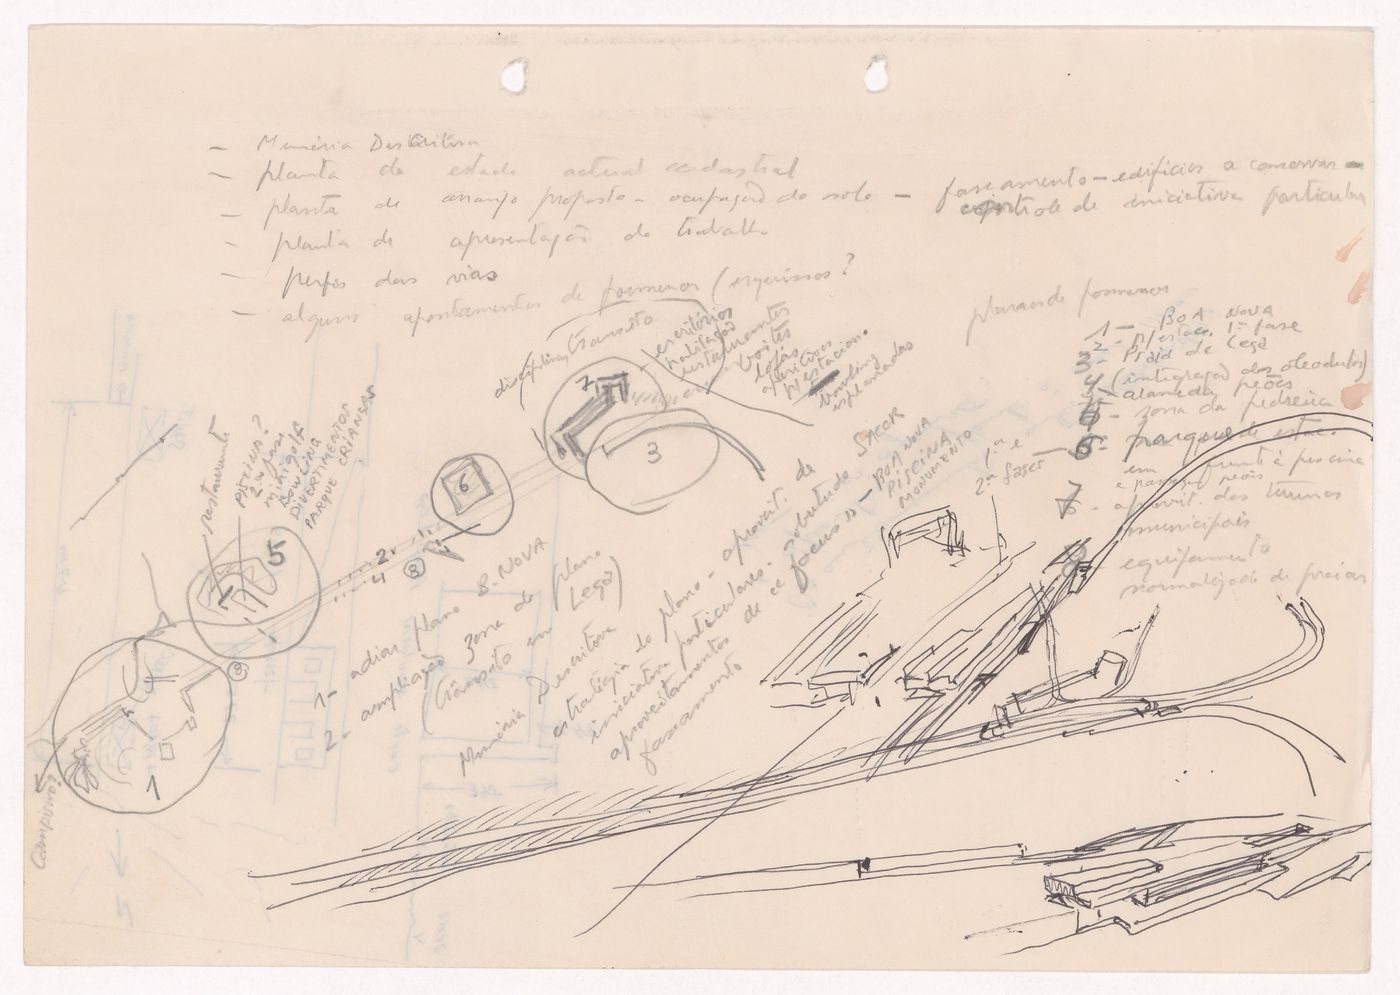 - Memória Descritiva
- planta do estado actual cadastral
- planta de arranjo proposto - ocupação do solo - faseamento - edifícios a conservar -
controle de iniciativa particular
- planta de apresentação do trabalho
- perfis das vias
- alguns apontamentos de pormenor (esquissos?
planos de pormenor
1 - BOA NOVA
2 - p/estac. 1ª fase
3 - Praia de Leça
4 (integração dos oleodutos)
- alameda peões
- zona da pedreira
1ª e
2ª fases - 6 - parque de estac.
em frente à piscina
e passeio peões
7 - aproveit. dos terrenos
municipais
8 equipamento
normalizado de praias
disciplinar transito
escritórios
habitação
restaurantes
boites
lojas
aperitivos
p/estacion.
bowling
esplanadas
2
3
6
restaurante
PISCINA?
2ª fase
minigolf
BOWLING
DIVERTIMENTOS
PARQUE CRIANSAS
5
7
2
4
8
8
1
Campismo?
1- adiar plano B. NOVA
2- ampliação zona do (plano
(trânsito em Leça)
Memória Descritiva
estratégia do plano - aproveit. de
iniciativa particulares. sobretudo SACOR
aproveitamentos de "focus" - BOA NOVA
PISCINA
MONUMENTO
faseamento